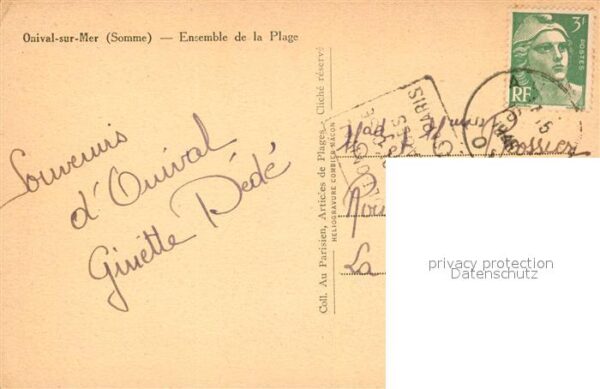 Onival-sur-Mer (Somme) — Ensemble de la Plage
Souvenirs
d'Onival
Ginette Dédé
Coll. Au Parisien, Articles de Plages. Cliché réservé
HELIOGRAVURE COMBIER MACON
3f
POSTES
RF
PARIS
La
privacy protection
Datenschutz